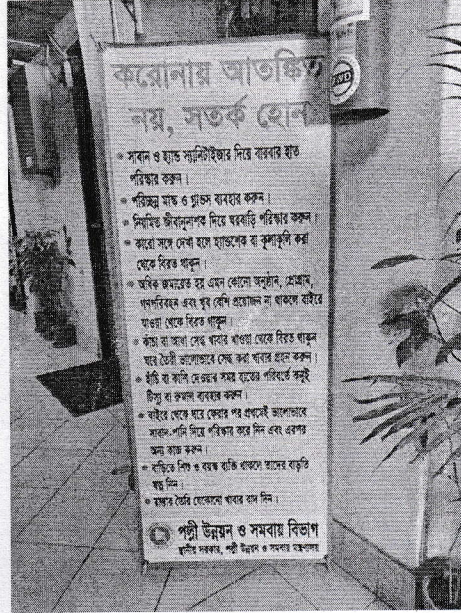 করোনায় আতঙ্কিত
নয়, সতর্ক হোন
সাবান ও হ্যান্ড স্যানিটাইজার দিয়ে বারবার হাত
পরিস্কার করুন।
পরিচ্ছন্ন মাস্ক ও গ্লাভস ব্যবহার করুন।
নিয়মিত জীবানুনাশক দিয়ে ঘরবাড়ি পরিস্কার করুন।
কারো সঙ্গে দেখা হলে হ্যান্ডশেক বা কুলাকুলি করা
থেকে বিরত থাকুন।
অধিক জমায়েত হয় এমন কোনো অনুষ্ঠান, প্রোগ্রাম,
গণপরিবহন এবং খুব বেশি প্রয়োজন না থাকলে বাইরে
যাওয়া থেকে বিরত থাকুন।
কাঁচা বা আধা সেদ্ধ খাবার খাওয়া থেকে বিরত থাকুন
ঘরে তৈরী ভালোভাবে সেদ্ধ করা খাবার গ্রহন করুন।
হাঁচি বা কাশি দেওয়ার সময় হাতের পরিবর্তে কনুই
টিস্যু বা রুমাল ব্যবহার করুন।
বাইরে থেকে ঘরে ফেরার পর প্রথমেই ভালোভাবে
সাবান-পানি দিয়ে পরিস্কার করে নিন এবং এরপর
অন্য কাজ করুন।
বাড়িতে শিশু ও বয়স্ক ব্যক্তি থাকলে তাদের বাড়তি
যত্ন নিন।
তৈরি যেকোনো খাবার বাদ দিন।
পল্লী উন্নয়ন ও সমবায় বিভাগ
স্থানীয় সরকার, পল্লী উন্নয়ন ও সমবায় মন্ত্রণালয়